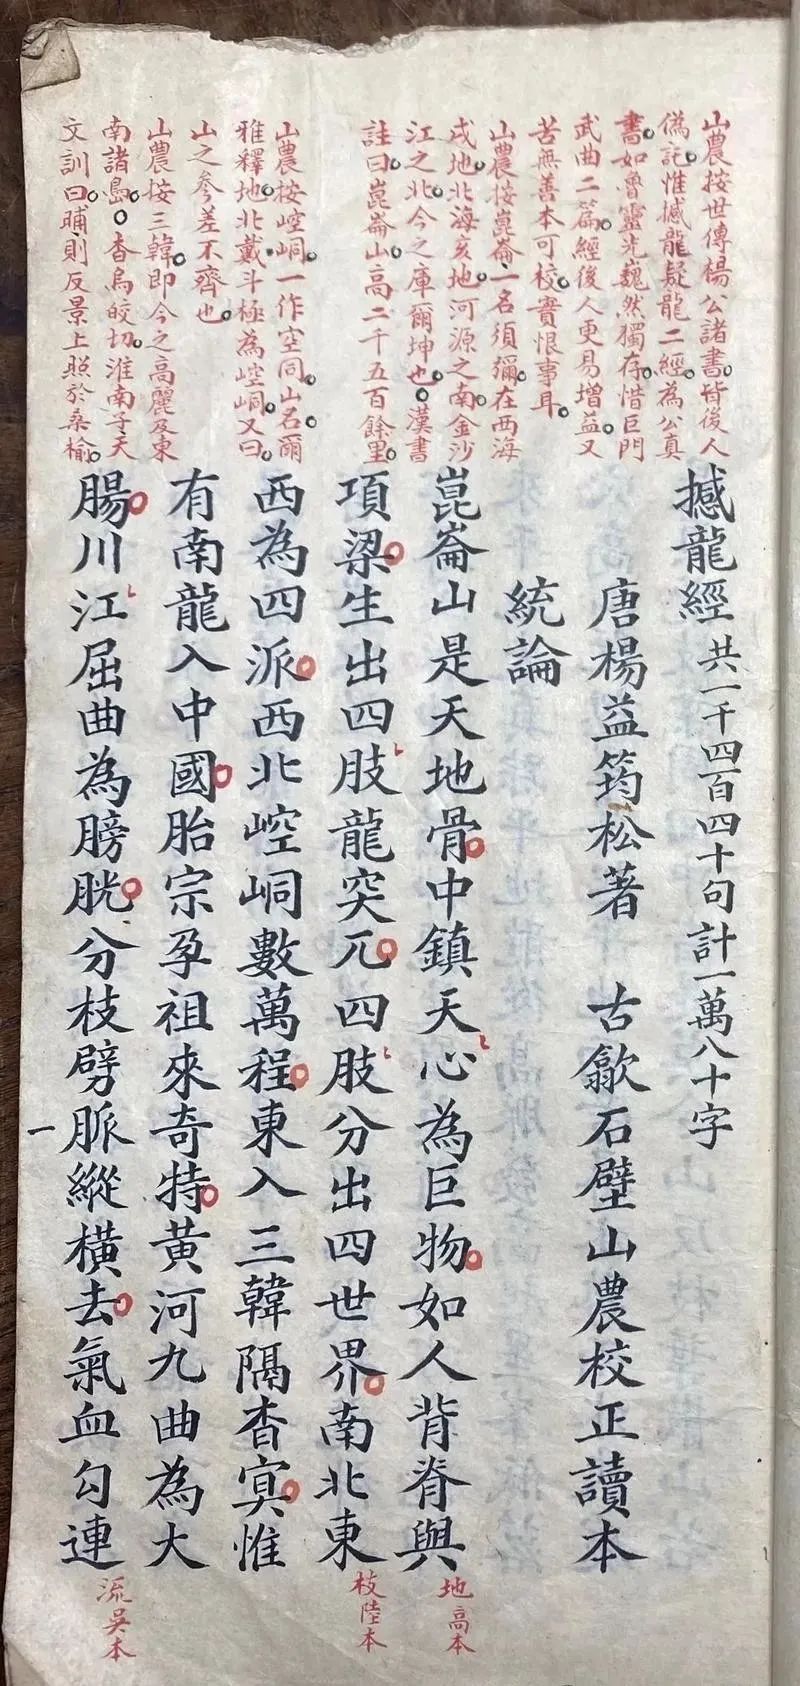 山農按世傳楊公諸書皆後人
偽託惟撼龍疑龍二經為公真
書如魯靈光巍然獨存惜巨門
武曲二篇經後人更易增益又
苦無善本可校實恨事耳
山農按崑崙一名須彌在西海
戌地北海亥地河源之南金沙
江之北今之庫爾坤也漢書
註曰崑崙山高二千五百餘里
山農按崆峒一作空同山名爾
雅釋地北戴斗極為崆峒又曰
山之參差不齊也
山農按三韓即今之高麗及東
南諸島杳烏皎切淮南子天
文訓曰晡則反景上照於桑榆
撼龍經 共一千四百四十句計一萬八十字
唐楊益筠松著 古歙石壁山農校正讀本
統論
崑崙山是天地骨中鎮天心為巨物如人背脊與
項梁生出四肢龍突兀四肢分出四世界南北東
西為四派西北崆峒數萬程東入三韓隔杳冥惟
有南龍入中國胎宗孕祖來奇特黃河九曲為大
腸川江屈曲為膀胱分枝劈脈縱橫去氣血勾連
一
地高本
枝陸本
流吳本